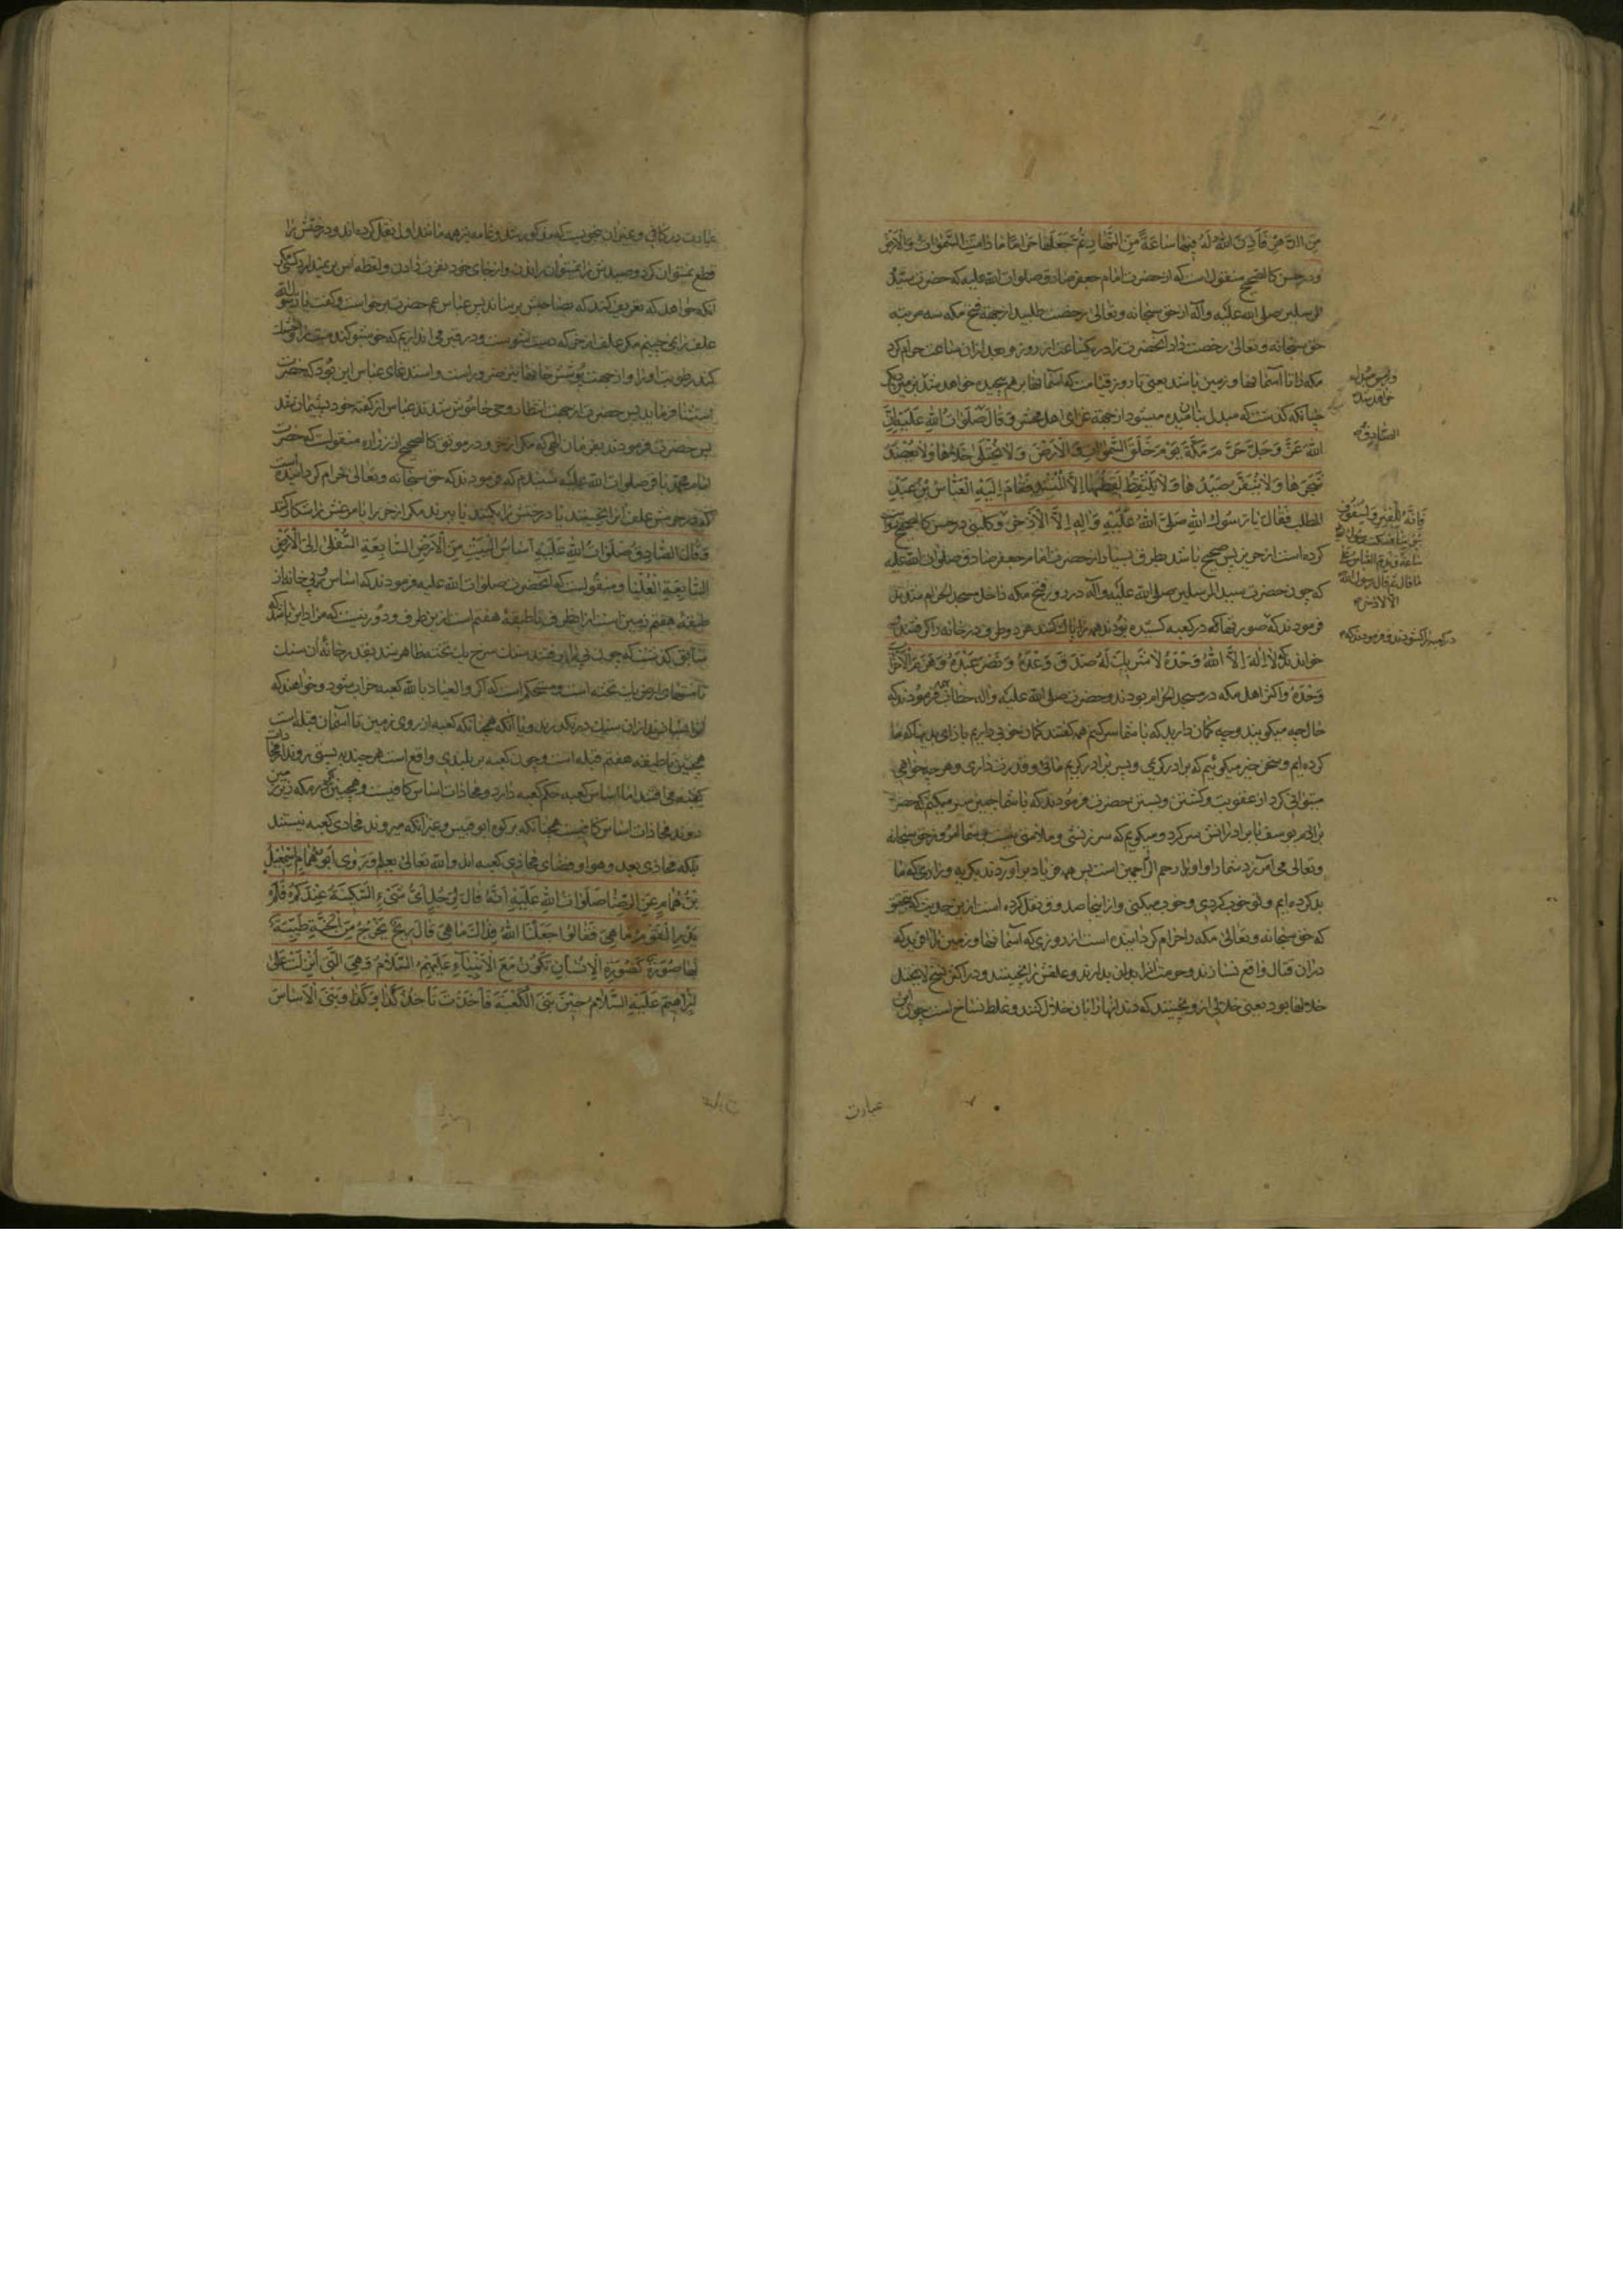 مِنَ الدَّهْرِ فَاَذِنَ اللهُ لَهُ فِيهَا سَاعَةً مِنَ النَّهَارِ ثُمَّ جَعَلَهَا حَرَامًا مَا دَامَتِ السَّمٰوَاتُ وَالْاَرْضُ
و در حسن کالصحیح منقولست که از حضرت امام جعفر صادق صلوات الله علیه که حضرت سید
المرسلین صلی الله علیه وآله از حق سبحانه وتعالی رخصت طلبید از جهة فتح مکه سه مرتبه
حق سبحانه وتعالی رخصت داد آنحضرت را در یکساعت از روز و بعد ازان ساعت حرام کرد
مکه را تا آسمانها و زمین باشد یعنی تا روز قیامت که آسمانها برهم پیچیده خواهد شد بزمین دیگر
چنانکه گذشت که مبدل میشود از جهة اهل محشر وَقَالَ صَلَوَاتُ اللهِ عَلَيْهِ اِنَّ
اللهَ عَزَّ وَجَلَّ حَرَّمَ مَكَّةَ يَوْمَ خَلَقَ السَّمٰوَاتِ وَالْاَرْضَ وَلَا يُخْتَلٰى خَلَاهَا وَلَا يُعْضَدُ
شَجَرُهَا وَلَا يُنَفَّرُ صَيْدُهَا وَلَا يُلْتَقَطُ لُقَطَتُهَا اِلَّا لِمُنْشِدٍ فَقَامَ اِلَيْهِ الْعَبَّاسُ بْنُ عَبْدِ
المطلب فَقَالَ يَا رَسُولَ اللهِ صَلَّى اللهُ عَلَيْهِ وَاٰلِهِ اِلَّا الْاِذْخِرَ و کلینی در حسن کالصحیح روایت
کرده است از حریز پس صحیح باشد بطرق بسیار از حضرت امام جعفر صادق صلوات الله علیه
که چون حضرت سید المرسلین صلی الله علیه وآله در روز فتح مکه داخل مسجد الحرام شدند
فرمودند که صورتها که در کعبه کشیده بودند همه را پاک کنند هر دو طرف در خانه را گرفتند
خواندند که لَا اِلٰهَ اِلَّا اللهُ وَحْدَهُ لَا شَرِيكَ لَهُ صَدَقَ وَعْدَهُ وَنَصَرَ عَبْدَهُ وَهَزَمَ الْاَحْزَابَ
وَحْدَهُ و اکثر اهل مکه در مسجد الحرام بودند و حضرت صلی الله علیه وآله خطاب فرمودند که
حال چه میگویید و چه گمان دارید که با شما سر کنیم همه گفتند گمان خوبی داریم با زای بدیها که ما
کرده‌ایم و سخن خیر میگوئیم که برادر کریمی و پسر برادر کریم مائی و قدرت داری و هر چه خواهی
میتوانی کرد از عقوبت و کشتن و بستن حضرت فرمودند که با شما چنین سر میکنم که حضرت
برادرم یوسف با برادرانش سر کرد و میگویم که سرزنشی و ملامتی نیست بشما امروز حق سبحانه
وتعالی می‌آمرزد شما را و او ارحم الراحمین است پس همه فریاد برآوردند بگریه و زاری که ما
بد کرده‌ایم و تو خوب کردی و خوب میکنی و از اینجا صدوق نقل کرده است ازین حدیث که
که حق سبحانه وتعالی مکه را حرام گردانیده است از روزی که آسمانها و زمین را آفریده که
دران قتال واقع نسازند و حرمت آنرا بدارند و علفش را نچینند و در اکثر نسخ لا یتخلل
خلالها بود یعنی خلالی ازو نچینند که دندانها را بان خلال کنند و غلط نساخ است چون این
الصادق
الا الاذخر
در کعبه را کشودند و فرمودند که
عبارت
عبارت در کافی و غیران نیست که مذکور شد و عامه نیز همه مانند اول نقل کرده‌اند و درختش را
قطع نمیتوان کرد و صیدش را نمیتوان راندن و از جای خود نفرت دادن و لقطه اش بر نمیدارد کسی مگر
آنکه خواهد که تعریف کند که بصاحبش برساند پس عباس عم حضرت برخواست و گفت یا رسول الله
علف را نمی‌چینیم مگر علف اذخر که دست شویست و در قبر می اندازیم که خوشبو کند میت را و خشک
کند رطوبت او را و از جهت پوشش خانها نیز ضرور است و استدعای عباس این بود که حضرت
استثنا فرماید پس حضرت از جهت انتظار وحی خاموش شدند عباس از گفته خود پشیمان شد
پس حضرت فرمودند بفرمان الهی که مگر اذخر و در موثق کالصحیح از زراره منقولست که حضرت
امام محمد باقر صلوات الله علیه شنیدم که فرمودند که حق سبحانه وتعالی حرام گردانیده است
که در حرمش علف آنرا نچینند یا درختش را بکنند یا ببرند مگر اذخر را یا مرغش را شکار کنند
وَقَالَ الصَّادِقُ صَلَوَاتُ اللهِ عَلَيْهِ اَسَاسُ الْبَيْتِ مِنَ الْاَرْضِ السَّابِعَةِ السُّفْلٰى اِلَى الْاَرْضِ
السَّابِعَةِ الْعُلْيَا و منقولست که آنحضرت صلوات الله علیه فرمودند که اساس و پی خانه از
طبقه هفتم زمین است ازان طرف تا طبقه هفتم است ازین طرف و دور نیست که مراد این باشد که
سابق گذشت که چون پی را میکندند سنگ سرخ یک تخته ظاهر شد بقدر خانه آن سنگ
تا منتهای ارض یک تخته است و مستحکم است که اگر والعیاذ بالله کعبه خراب شود و خواهند که
ازان سنگ درنگذرید و یا آنکه همچنانکه کعبه از روی زمین تا آسمان قبله است
همچنین تا طبقه هفتم قبله است و چون کعبه بر بلندی واقع است هر چند به پستی روند
کعبه می افتد اما اساس کعبه حکم کعبه دارد و محاذات اساس کافیست و همچنین اگر بر مکه زیر زمین
روند محاذات اساس کافیست همچنانکه بر کوه ابو قبیس و غیر آنکه میروند محاذی کعبه نیستند
بلکه محاذی بعد و هوا و فضای محاذی کعبه اند والله تعالی یعلم وَرَوٰى اَبُو هَمَّامٍ اِسْمٰعِيلُ
بْنُ هَمَّامٍ عَنِ الرِّضَا صَلَوَاتُ اللهِ عَلَيْهِ اَنَّهُ قَالَ لِرَجُلٍ اَيُّ شَيْءٍ السَّكِينَةُ عِنْدَكُمْ فَلَمْ
يَدْرِ الْقَوْمُ مَا هِيَ فَقَالُوا جَعَلَنَا اللهُ فِدَاكَ مَا هِيَ قَالَ رِيحٌ تَخْرُجُ مِنَ الْجَنَّةِ طَيِّبَةٌ
لَهَا صُورَةٌ كَصُورَةِ الْاِنْسَانِ تَكُونُ مَعَ الْاَنْبِيَاءِ عَلَيْهِمُ السَّلَامُ وَهِيَ الَّتِي اُنْزِلَتْ عَلٰى
اِبْرٰهِيمَ عَلَيْهِ السَّلَامُ حِينَ بَنَى الْكَعْبَةَ فَاَخَذَتْ تَأْخُذُ كَذَا وَكَذَا وَبَنَى الْاَسَاسَ